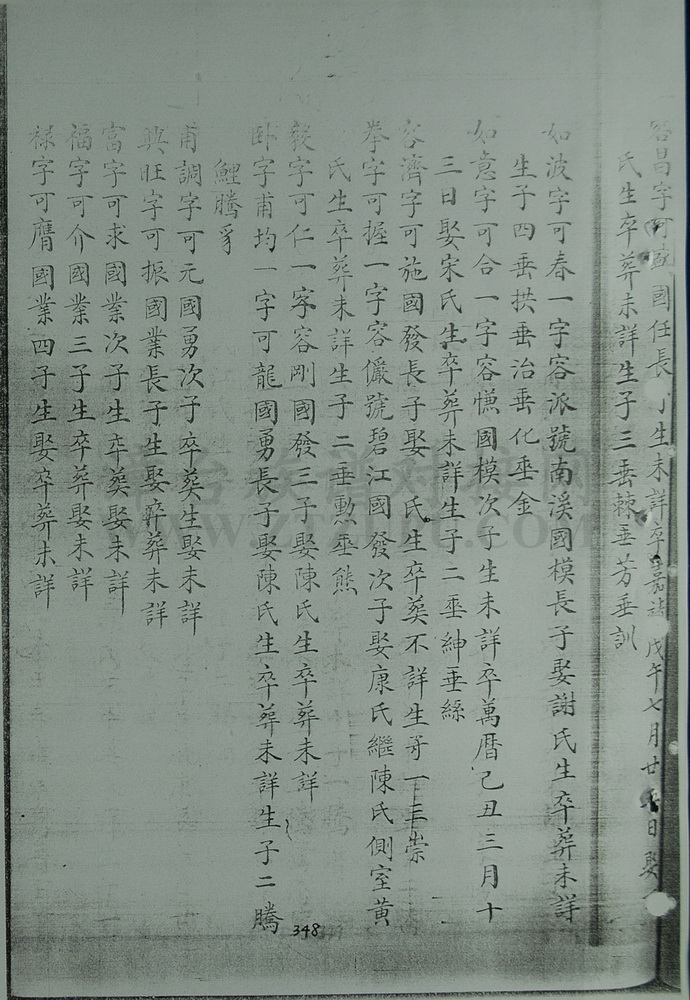 容昌字可 國任長 生未詳卒嘉靖戊午七月廿 日娶
氏生卒葬未詳生子三垂棘垂芳垂訓
如波字可春一字容派號南溪國模長子娶謝氏生卒葬未詳
生子四垂拱垂治垂化垂金
如意字可合一字容慊國模次子生未詳卒萬曆己丑三月十
三日娶宋氏生卒葬未詳生子二垂紳垂絲
容濟字可施國發長子娶 氏生卒葬不詳生子一 崇
拳字可握一字容儼號碧江國發次子娶康氏繼陳氏側室黃
氏生卒葬未詳生子二垂勲垂熊
毅字可仁一字容剛國發三子娶陳氏生卒葬未詳
卧字甫均一字可龍國勇長子娶陳氏生卒葬未詳生子二騰
鯉騰豸
甫調字可元國勇次子卒葬生娶未詳
興旺字可振國業長子生娶卒葬未詳
富字可求國業次子生卒葬娶未詳
福字可介國業三子生卒葬娶未詳
祿字可膺國業四子生娶卒葬未詳
348